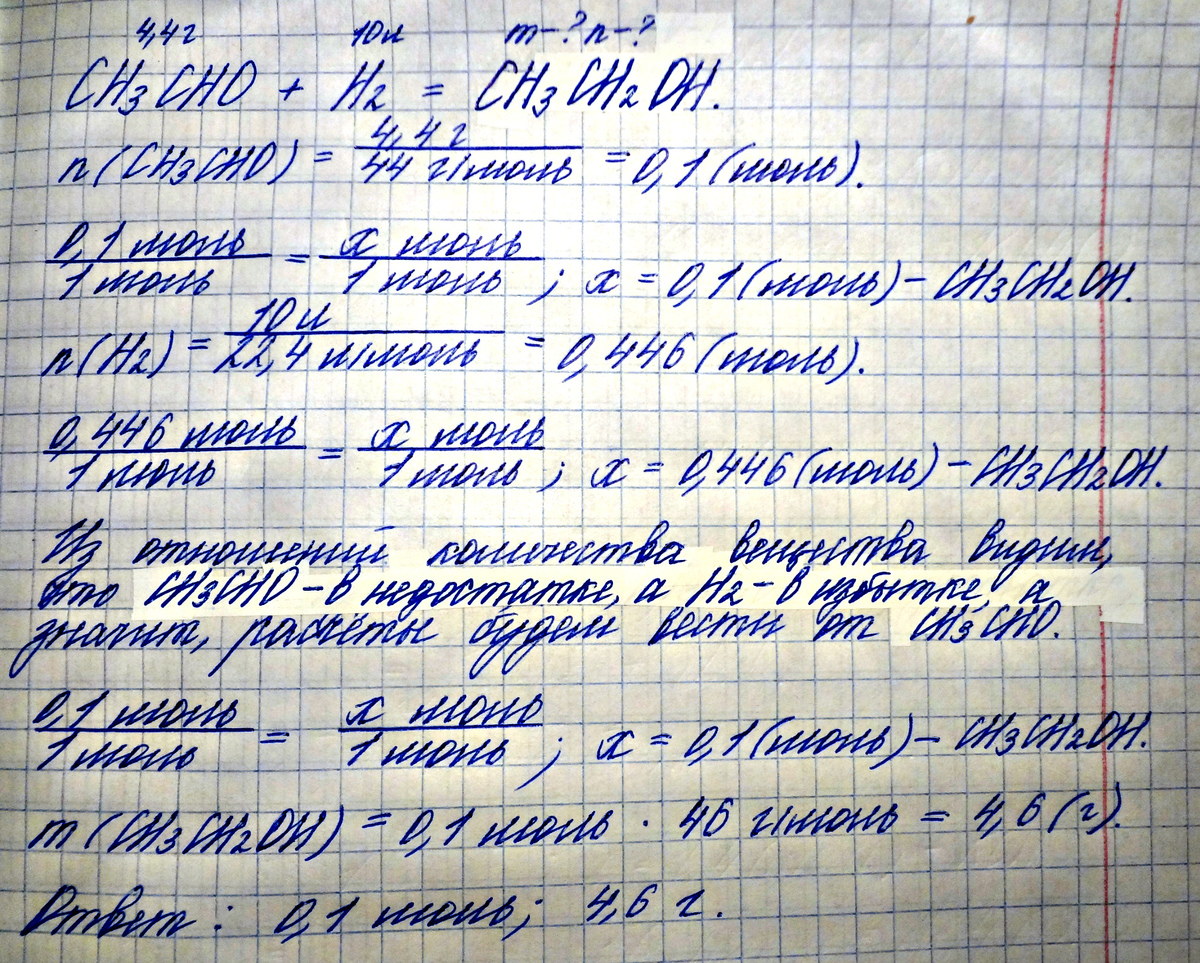 4,4г 10л m-? n-?
CH₃CHO + H₂ = CH₃CH₂OH.
n(CH₃CHO) = 4,4 г / 44 г/моль = 0,1 (моль).
0,1 моль / 1 моль = x моль / 1 моль ; x = 0,1 (моль) – CH₃CH₂OH.
n(H₂) = 10 л / 22,4 л/моль = 0,446 (моль).
0,446 моль / 1 моль = x моль / 1 моль ; x = 0,446 (моль) – CH₃CH₂OH.
Из отношений количества вещества видим,
что CH₃CHO – в недостатке, а H₂ – в избытке, а
значит, расчёты будем вести от CH₃CHO.
0,1 моль / 1 моль = x моль / 1 моль ; x = 0,1 (моль) – CH₃CH₂OH.
m (CH₃CH₂OH) = 0,1 моль · 46 г/моль = 4,6 (г).
Ответ: 0,1 моль; 4,6 г.